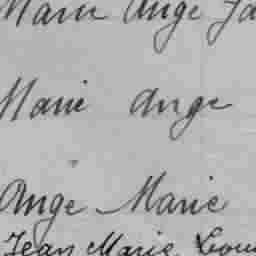 Marie Ange Ja
Marie Ange
Ange Marie
Jean Marie Loui